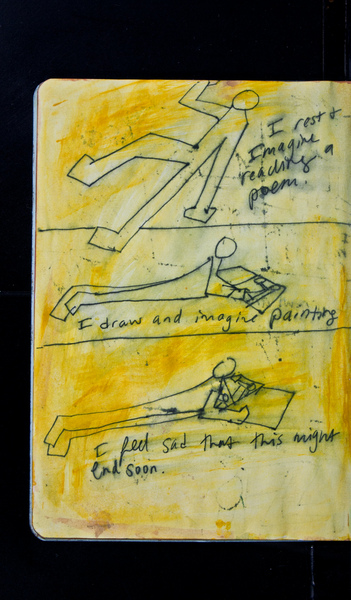 I rest &
Imagine
reading a
poem.
I draw and imagine painting
I feel sad that this might
End soon.